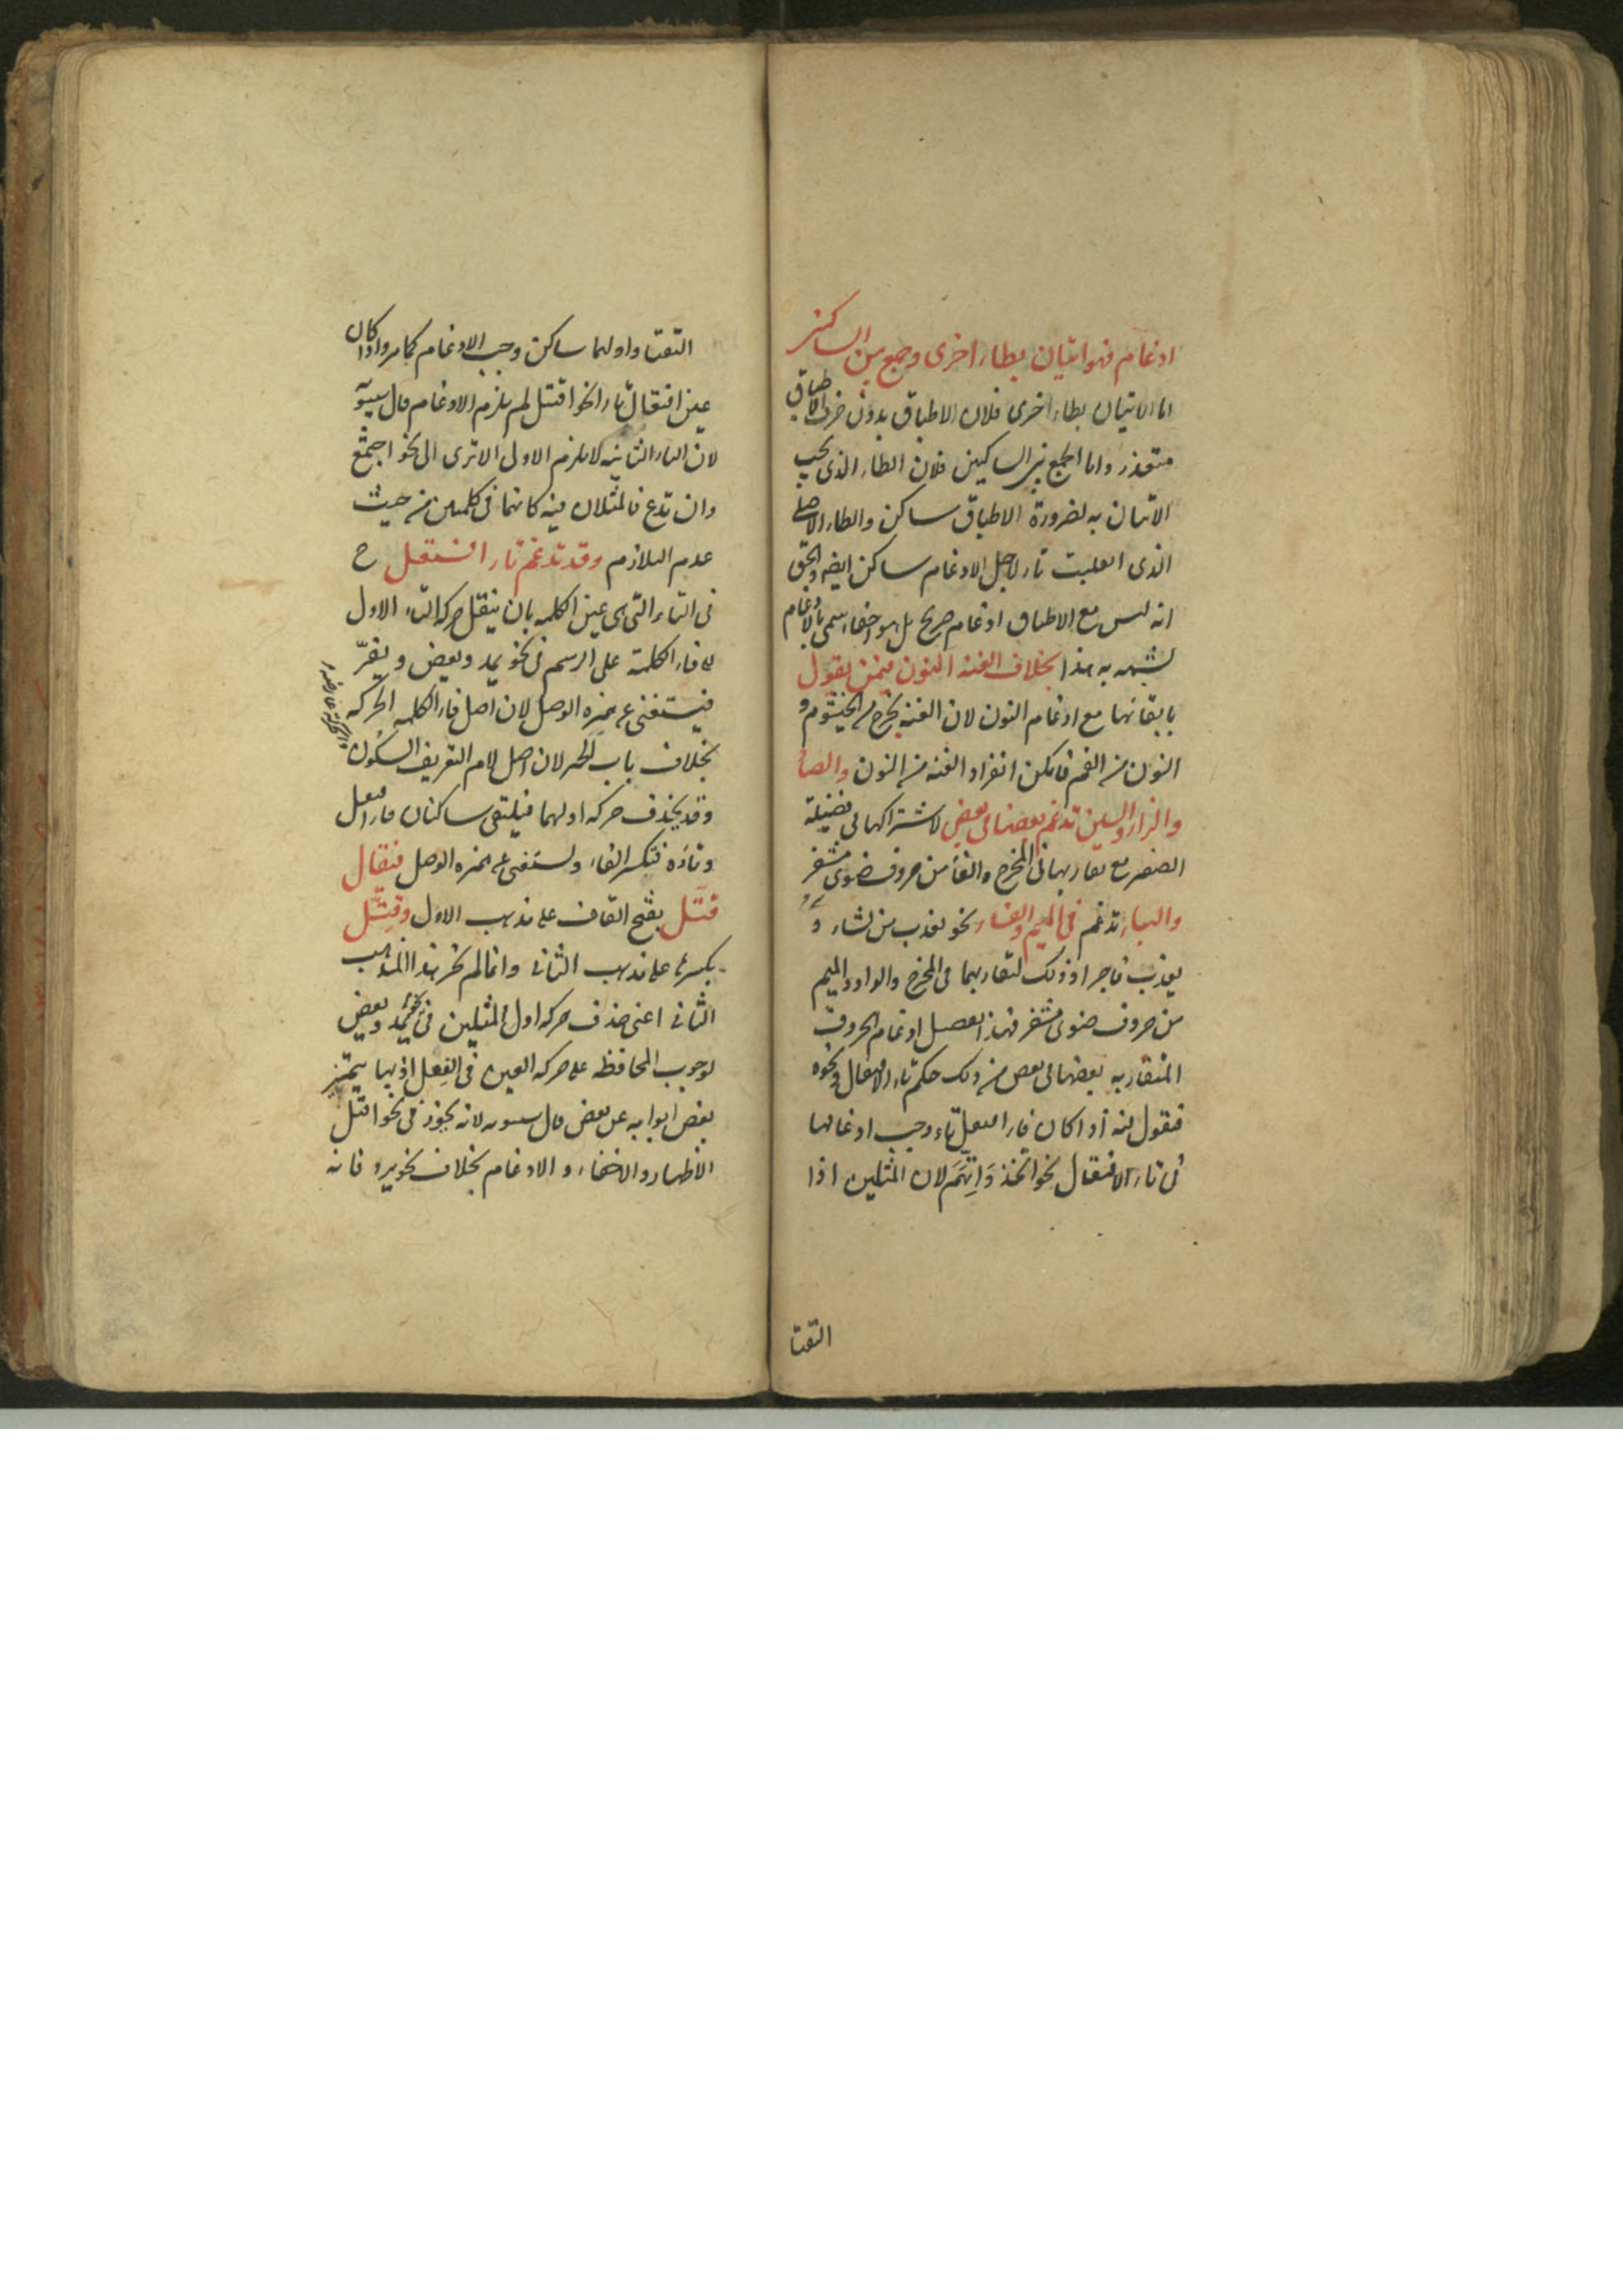 ادغام فهو اتيان بطاء اخرى وجمع بين الساكنين
اما الاتيان بطاء اخرى فلان الاطباق بدون حرف الاطباق
متعذر واما الجمع بين الساكنين فلان الطاء الذى يجب
الاتيان به لضرورة الاطباق ساكن والطاء الاصلى
الذى انقلبت تاء لاجل الادغام ساكن ايضا والحق
انه ليس مع الاطباق ادغام صريح بل هو اخفاء يسمى بالادغام
لشبهه به هذا بخلاف الغنة النون فيمن يقول
بابقائها مع ادغام النون لان الغنة تخرج من الخيشوم و
النون من الفم فامكن انفراد الغنة من النون والصاد
والزاء والسين تدغم بعضها فى بعض لاشتراكها فى فضيلة
الصفير مع تقاربها فى المخرج والفاء من حروف ضوى مشفر
والباء تدغم فى الميم والفاء نحو يعذب من يشاء و
يعذب فاجرا وذلك لتقاربهما فى المخرج والواو والميم
من حروف ضوى مشفر فهذا تفصيل ادغام الحروف
المتقاربه بعضها فى بعض من ذلك حكم تاء الافتعال ونحوه
فنقول انه اذا كان فاء افتعل تاء وجب ادغامها
فى تاء الافتعال نحو اتخذ واتهم لان المثلين اذا
التقتا
التقتا واولهما ساكن وجب الادغام كما مر واذا كان
عين افتعال تاء نحو اقتتل لم يلزم الادغام قال سيبويه
لان التاء الثانية لا يلزم الاولى الا ترى الى نحو اجتمع
وان تدع فالمثلان فيه كانهما فى كلمتين من حيث
عدم التلازم وقد تدغم تاء افتعل ح
فى التاء التى هى عين الكلمه بان ينقل حركة التاء الاول
الى فاء الكلمة على الرسم فى نحو يمد ويعض ويفرّ
فيستغنى عن همزه الوصل لان اصل فاء الكلمه الحركه
بخلاف باب الحمر لان اصل لام التعريف السكون
وقد يحذف حركه اولهما فيلتقى ساكنان فاء افتعل
وتاؤه فتكسر الفاء ويستغنى عن همزه الوصل فيقال
قتّل بفتح القاف على مذهب الاول وقتّل
بكسرها على مذهب الثانى وانما لم يجز هذا المذهب
الثانى اعنى حذف حركه اول المثلين فى نحو يمد ويعض
لوجوب المحافظه على حركه العين فى الفعل اذ بها يتميز
بعض ابوابه عن بعض قال سيبويه لانه يجوز فى نحو اقتتل
الاظهار والاخفاء والادغام بخلاف نحو يرد فانه